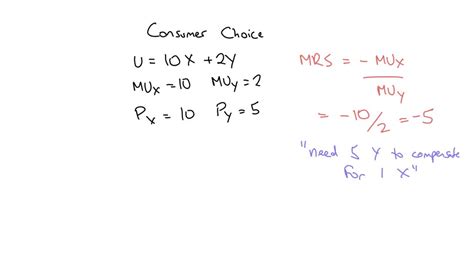 Consumer Choice
U = 10X + 2Y
MUx = 10 MUy = 2
Px = 10 Py = 5
MRS = - MUx
MUy
= -10/2 = -5
"need 5 Y to compensate
for 1 X"